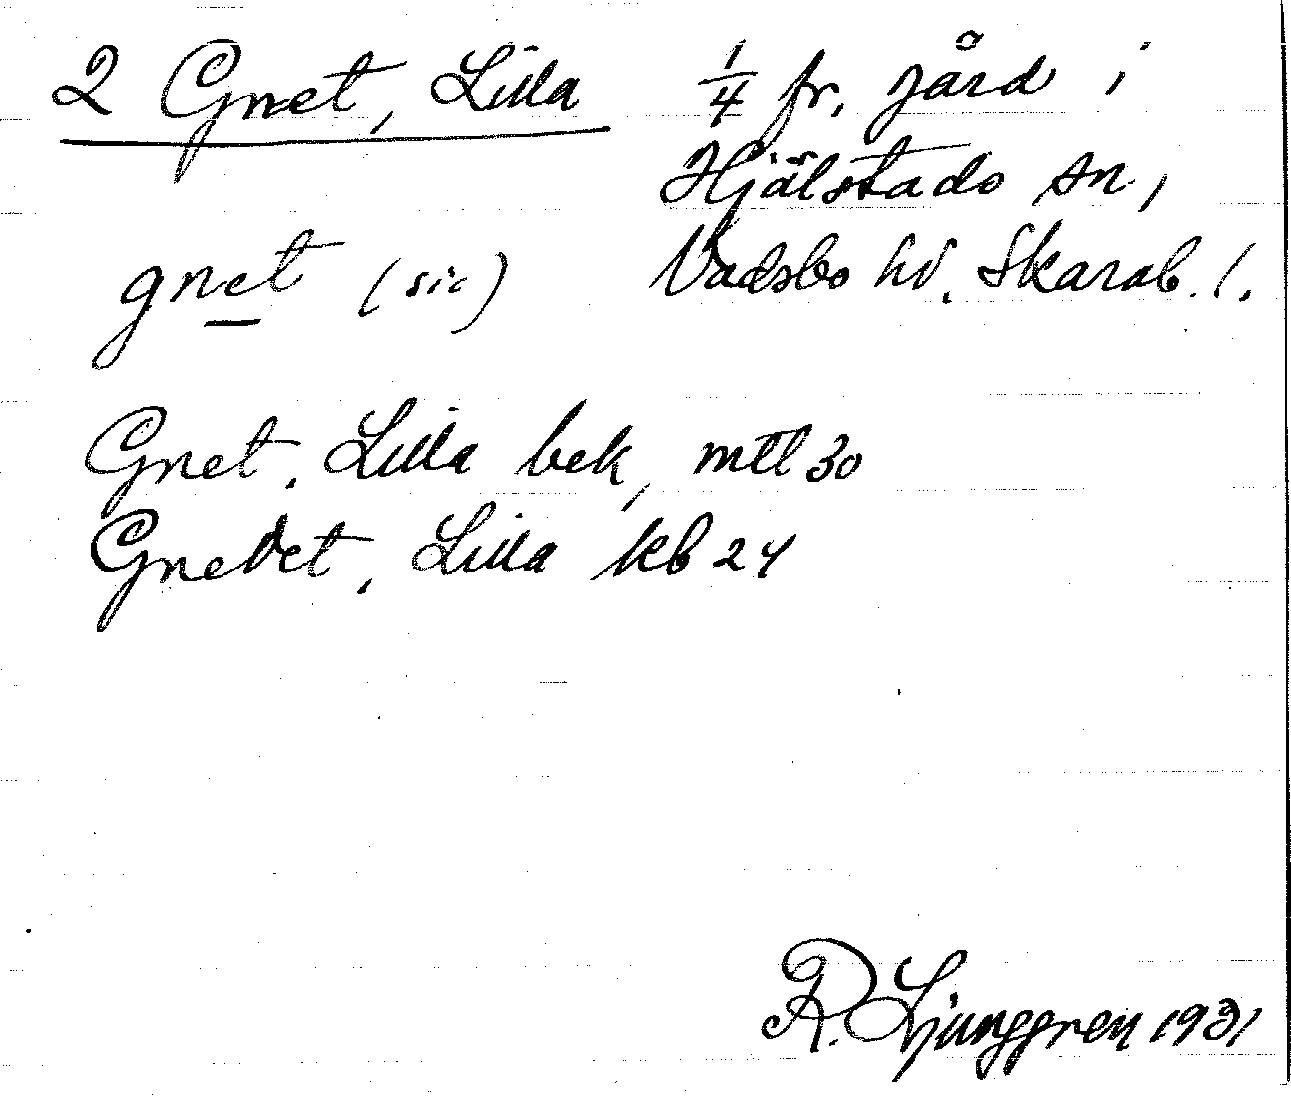 2 Gnet, Lilla
1/4 fr. gård i
Hjälstads sn,
Vadsbo hd. Skarab. l.
gnet (sic)
Gnet, Lilla bek, mtl 30
Gnetet, Lilla kb 24
R. Ljunggren 1931